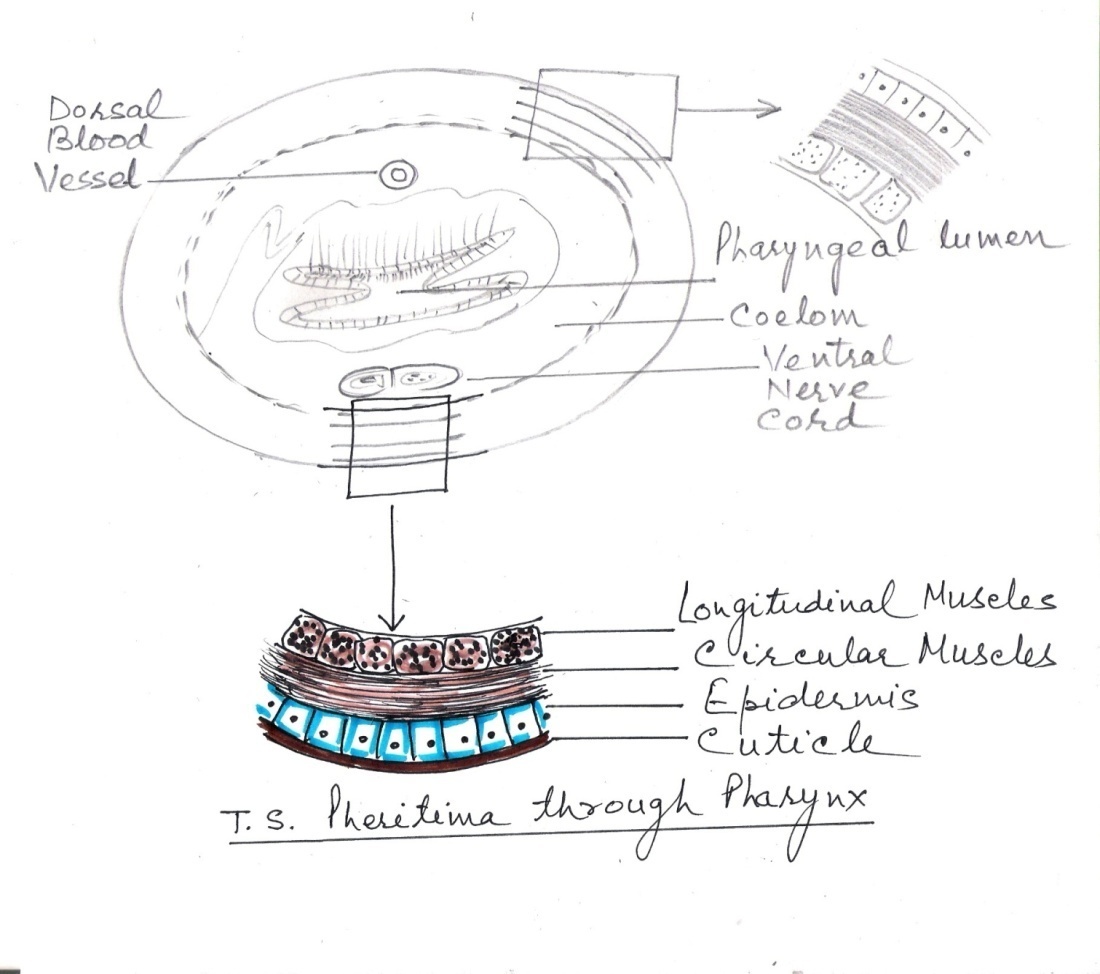 Dorsal
Blood
Vessel
Pharyngeal lumen
Coelom
Ventral
Nerve
Cord
Longitudinal Muscles
Circular Muscles
Epidermis
Cuticle
T. S. Pheritima through Pharynx